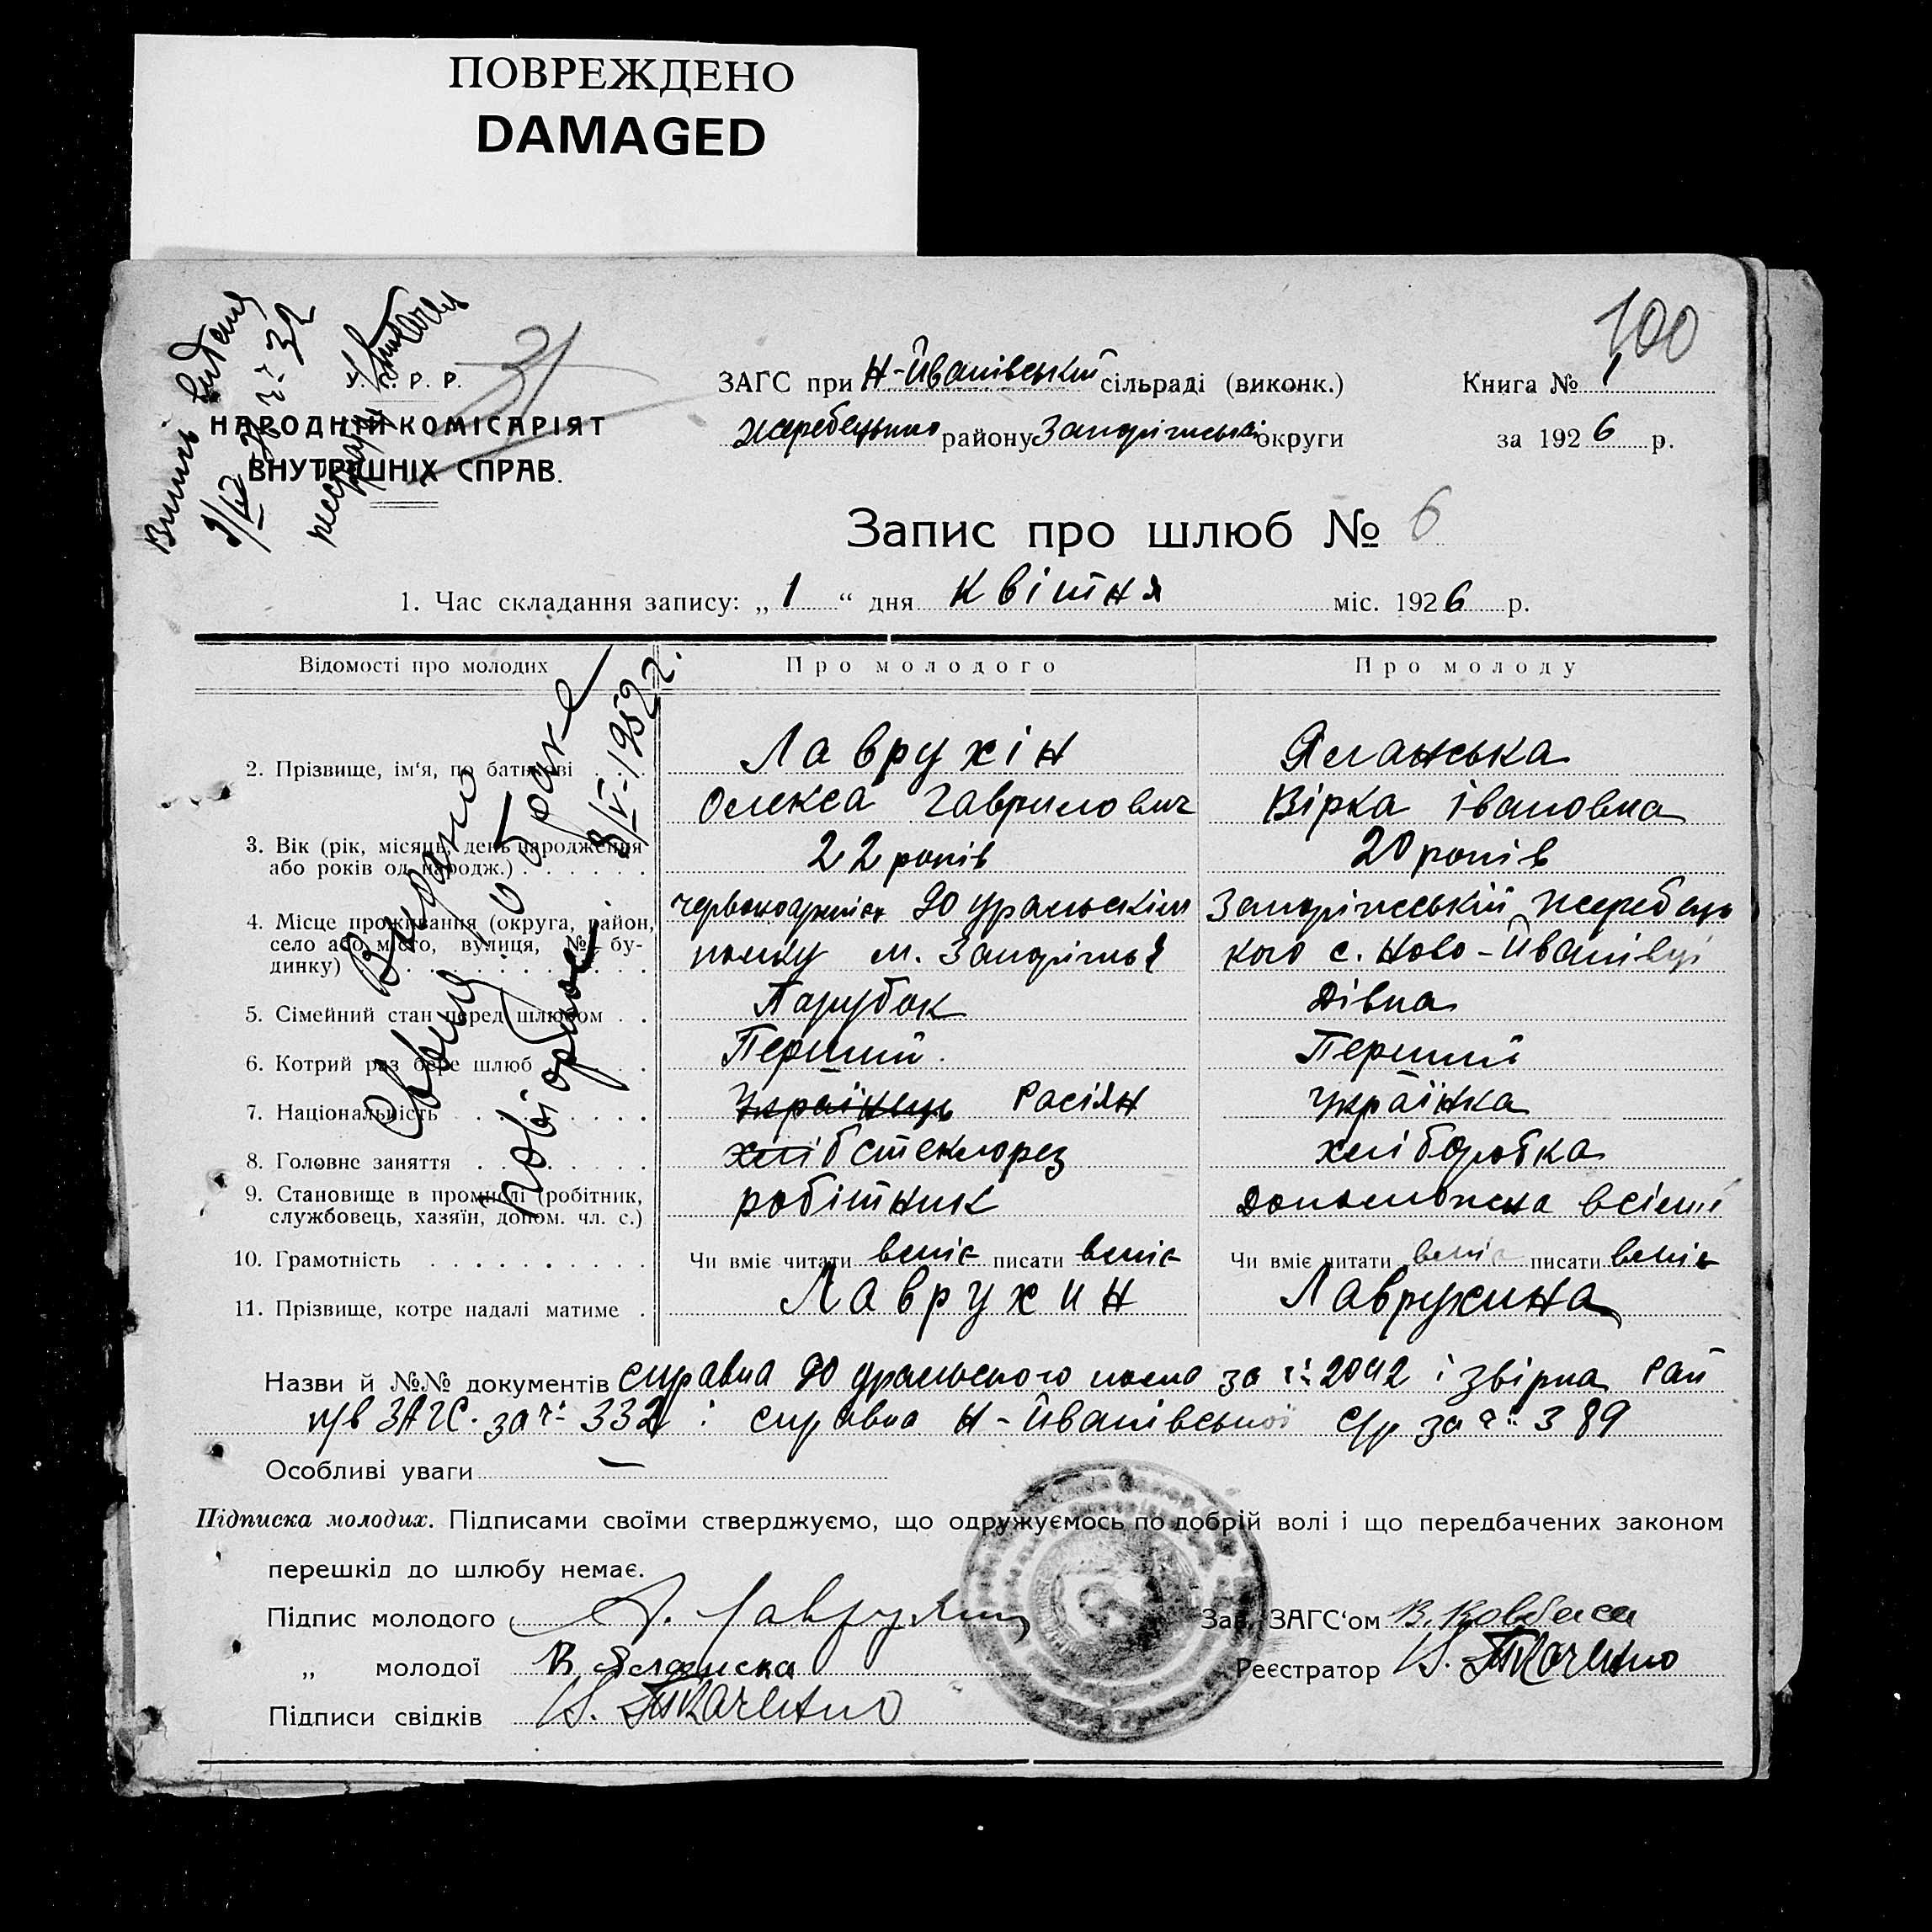 ПОВРЕЖДЕНО
DAMAGED
100
У. С. Р. Р.
31
НАРОДНІЙ КОМІСАРІЯТ
ВНУТРІШНІХ СПРАВ.
ЗАГС при Н-Йванівській сільраді (виконк.)
Книга № 1
району округи
за 1926 р.
Запис про шлюб № 6
1. Час складання запису: „ 1 “ дня квітня міс. 1926 р.
Відомості про молодих
Про молодого
Про молоду
2. Прізвище, ім‘я, по батькові
Лаврухін
Олекса Гаврилович
Ясланська
Вірка Івановна
3. Вік (рік, місяць, день народження
або років од народж.)
22 років
20 років
4. Місце проживання (округа, район,
село або місто, вулиця, № бу-
динку)
90 уральскіт
полку м. Запоріжья
кого с. Ново-Йванівці
5. Сімейний стан перед шлюбом
Парубок
Дівка
6. Котрий раз бере шлюб
Перший
Перший
7. Національність
Українець Расіян
Українка
8. Головне заняття
хліб стеклорез
хліборобка
9. Становище в промислі (робітник,
службовець, хазяїн, допом. чл. с.)
робітник
10. Грамотність
Чи вміє читати вміє писати вміє
Чи вміє читати вміє писати вміє
11. Прізвище, котре надалі матиме
Лаврухин
Лаврухина
Назви й №№ документів справка 90 уральского полка за 2042 і звірка Рай
ЗАГС за 332 і справка Н-Йванівської с/р за 389
Особливі уваги —
Підписка молодих. Підписами своїми стверджуємо, що одружуємось по добрій волі і що передбачених законом
перешкід до шлюбу немає.
Підпис молодого А. Лаврухин
Зав. ЗАГС‘ом В. Ковбаса
„ молодої В.
Реєстратор Ткаченко
Підписи свідків Ткаченко
Выдано
повторное
о браке
8/V-1952 г.